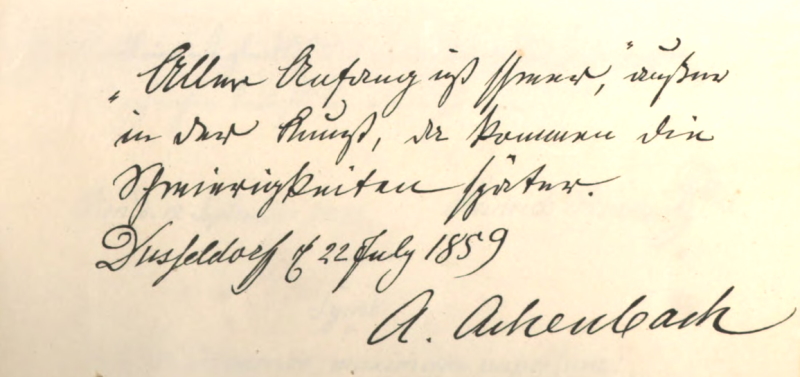 „Aller Anfang ist schwer,“ außer
in der Kunst, da kommen die
Schwierigkeiten später.
Dusseldorf d 22 July 1859
A. Achenbach